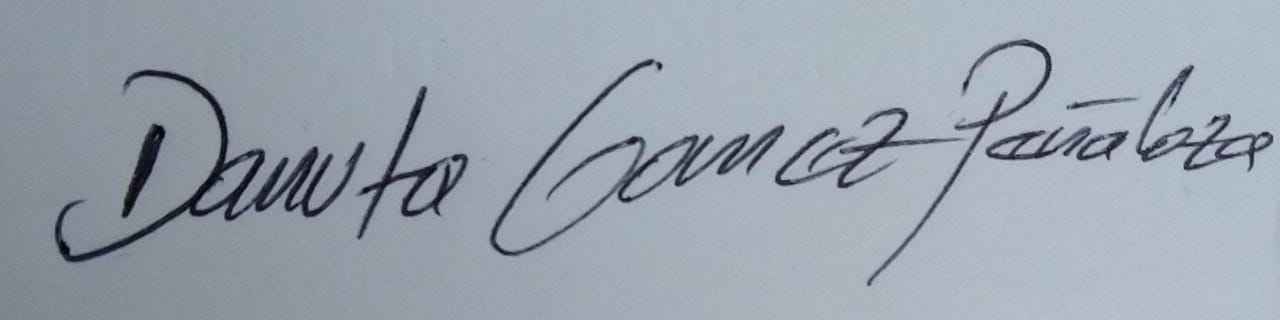 Danuta Gomez-Peñaloza